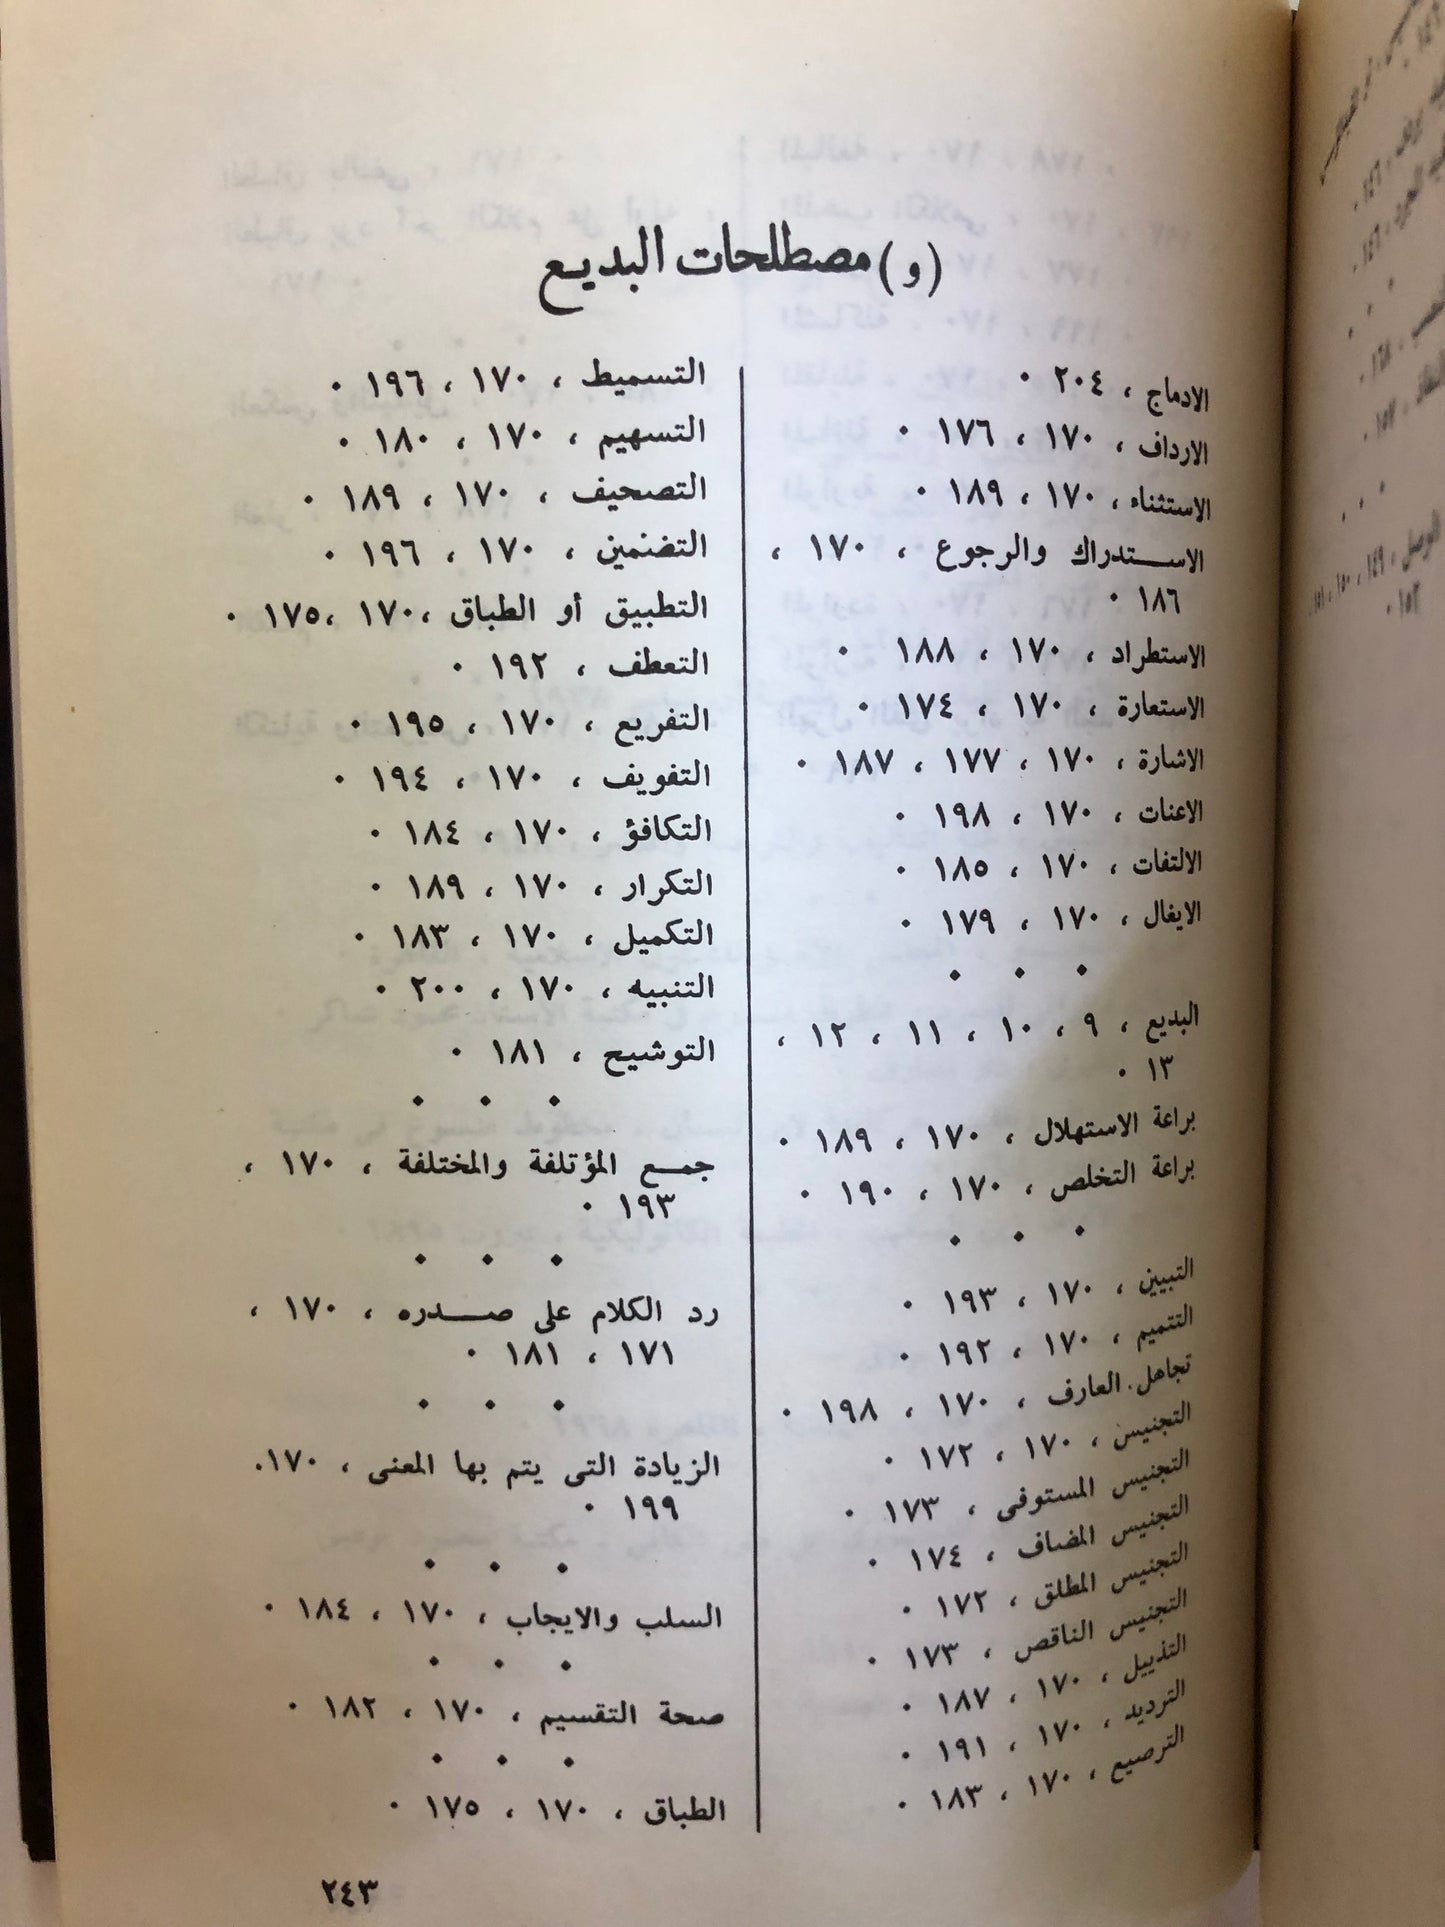 (و) مصطلحات البديع
الادماج ، ٢٠٤ ٠
الارداف ، ١٧٠ ، ١٧٦ ٠
الاستثناء ، ١٧٠ ، ١٨٩ ٠
الاستدراك والرجوع ، ١٧٠ ،
١٨٦ ٠
الاستطراد ، ١٧٠ ، ١٨٨ ٠
الاستعارة ، ١٧٠ ، ١٧٤ ٠
الاشارة ، ١٧٠ ، ١٧٧ ، ١٨٧ ٠
الاعنات ، ١٧٠ ، ١٩٨ ٠
الالتفات ، ١٧٠ ، ١٨٥ ٠
الايغال ، ١٧٠ ، ١٧٩ ٠
٠ ٠ ٠
البديع ، ٩ ، ١٠ ، ١١ ، ١٢ ،
١٣ ٠
براعة الاستهلال ، ١٧٠ ، ١٨٩ ٠
براعة التخلص ، ١٧٠ ، ١٩٠ ٠
٠ ٠ ٠
التبيين ، ١٧٠ ، ١٩٣ ٠
التتميم ، ١٧٠ ، ١٩٢ ٠
تجاهل العارف ، ١٧٠ ، ١٩٨ ٠
التجنيس ، ١٧٠ ، ١٧٢ ٠
التجنيس المستوفى ، ١٧٣ ٠
التجنيس المضاف ، ١٧٤ ٠
التجنيس المطلق ، ١٧٢ ٠
التجنيس الناقص ، ١٧٣ ٠
التذييل ، ١٧٠ ، ١٨٧ ٠
الترديد ، ١٧٠ ، ١٩١ ٠
الترصيع ، ١٧٠ ، ١٨٣ ٠
التسميط ، ١٧٠ ، ١٩٦ ٠
التسهيم ، ١٧٠ ، ١٨٠ ٠
التصحيف ، ١٧٠ ، ١٨٩ ٠
التضنمين ، ١٧٠ ، ١٩٦ ٠
التطبيق أو الطباق ، ١٧٠ ، ١٧٥ ٠
التعطف ، ١٩٢ ٠
التفريع ، ١٧٠ ، ١٩٥ ٠
التفويف ، ١٧٠ ، ١٩٤ ٠
التكافؤ ، ١٧٠ ، ١٨٤ ٠
التكرار ، ١٧٠ ، ١٨٩ ٠
التكميل ، ١٧٠ ، ١٨٣ ٠
التنبيه ، ١٧٠ ، ٢٠٠ ٠
التوشيح ، ١٨١ ٠
٠ ٠ ٠
جمع المؤتلفة والمختلفة ، ١٧٠ ،
١٩٣ ٠
٠ ٠ ٠
رد الكلام على صدره ، ١٧٠ ،
١٧١ ، ١٨١ ٠
٠ ٠ ٠
الزيادة التى يتم بها المعنى ، ١٧٠.
١٩٩ ٠
٠ ٠ ٠
السلب والايجاب ، ١٧٠ ، ١٨٤ ٠
٠ ٠ ٠
صحة التقسيم ، ١٧٠ ، ١٨٢ ٠
٠ ٠ ٠
الطباق ، ١٧٠ ، ١٧٥ ٠
٢٤٣